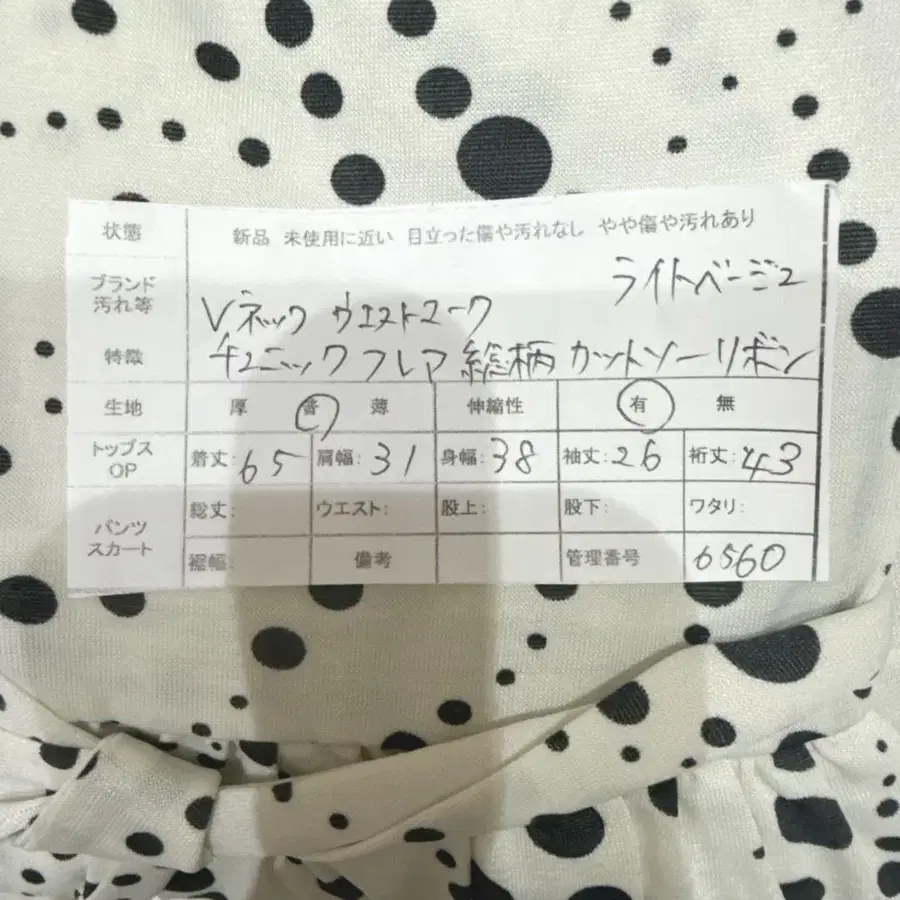 状態 新品 未使用に近い 目立った傷や汚れなし やや傷や汚れあり
ブランド
汚れ等
ライトベージュ
Vネック ウエストマーク
特徴 チュニック フレア 総柄 カットソー リボン
生地 厚 普 薄 伸縮性 有 無
トップス
OP
着丈:65 肩幅:31 身幅:38 袖丈:26 裄丈:43
パンツ
スカート
総丈: ウエスト: 股上: 股下: ワタリ:
裾幅: 備考 管理番号 6560